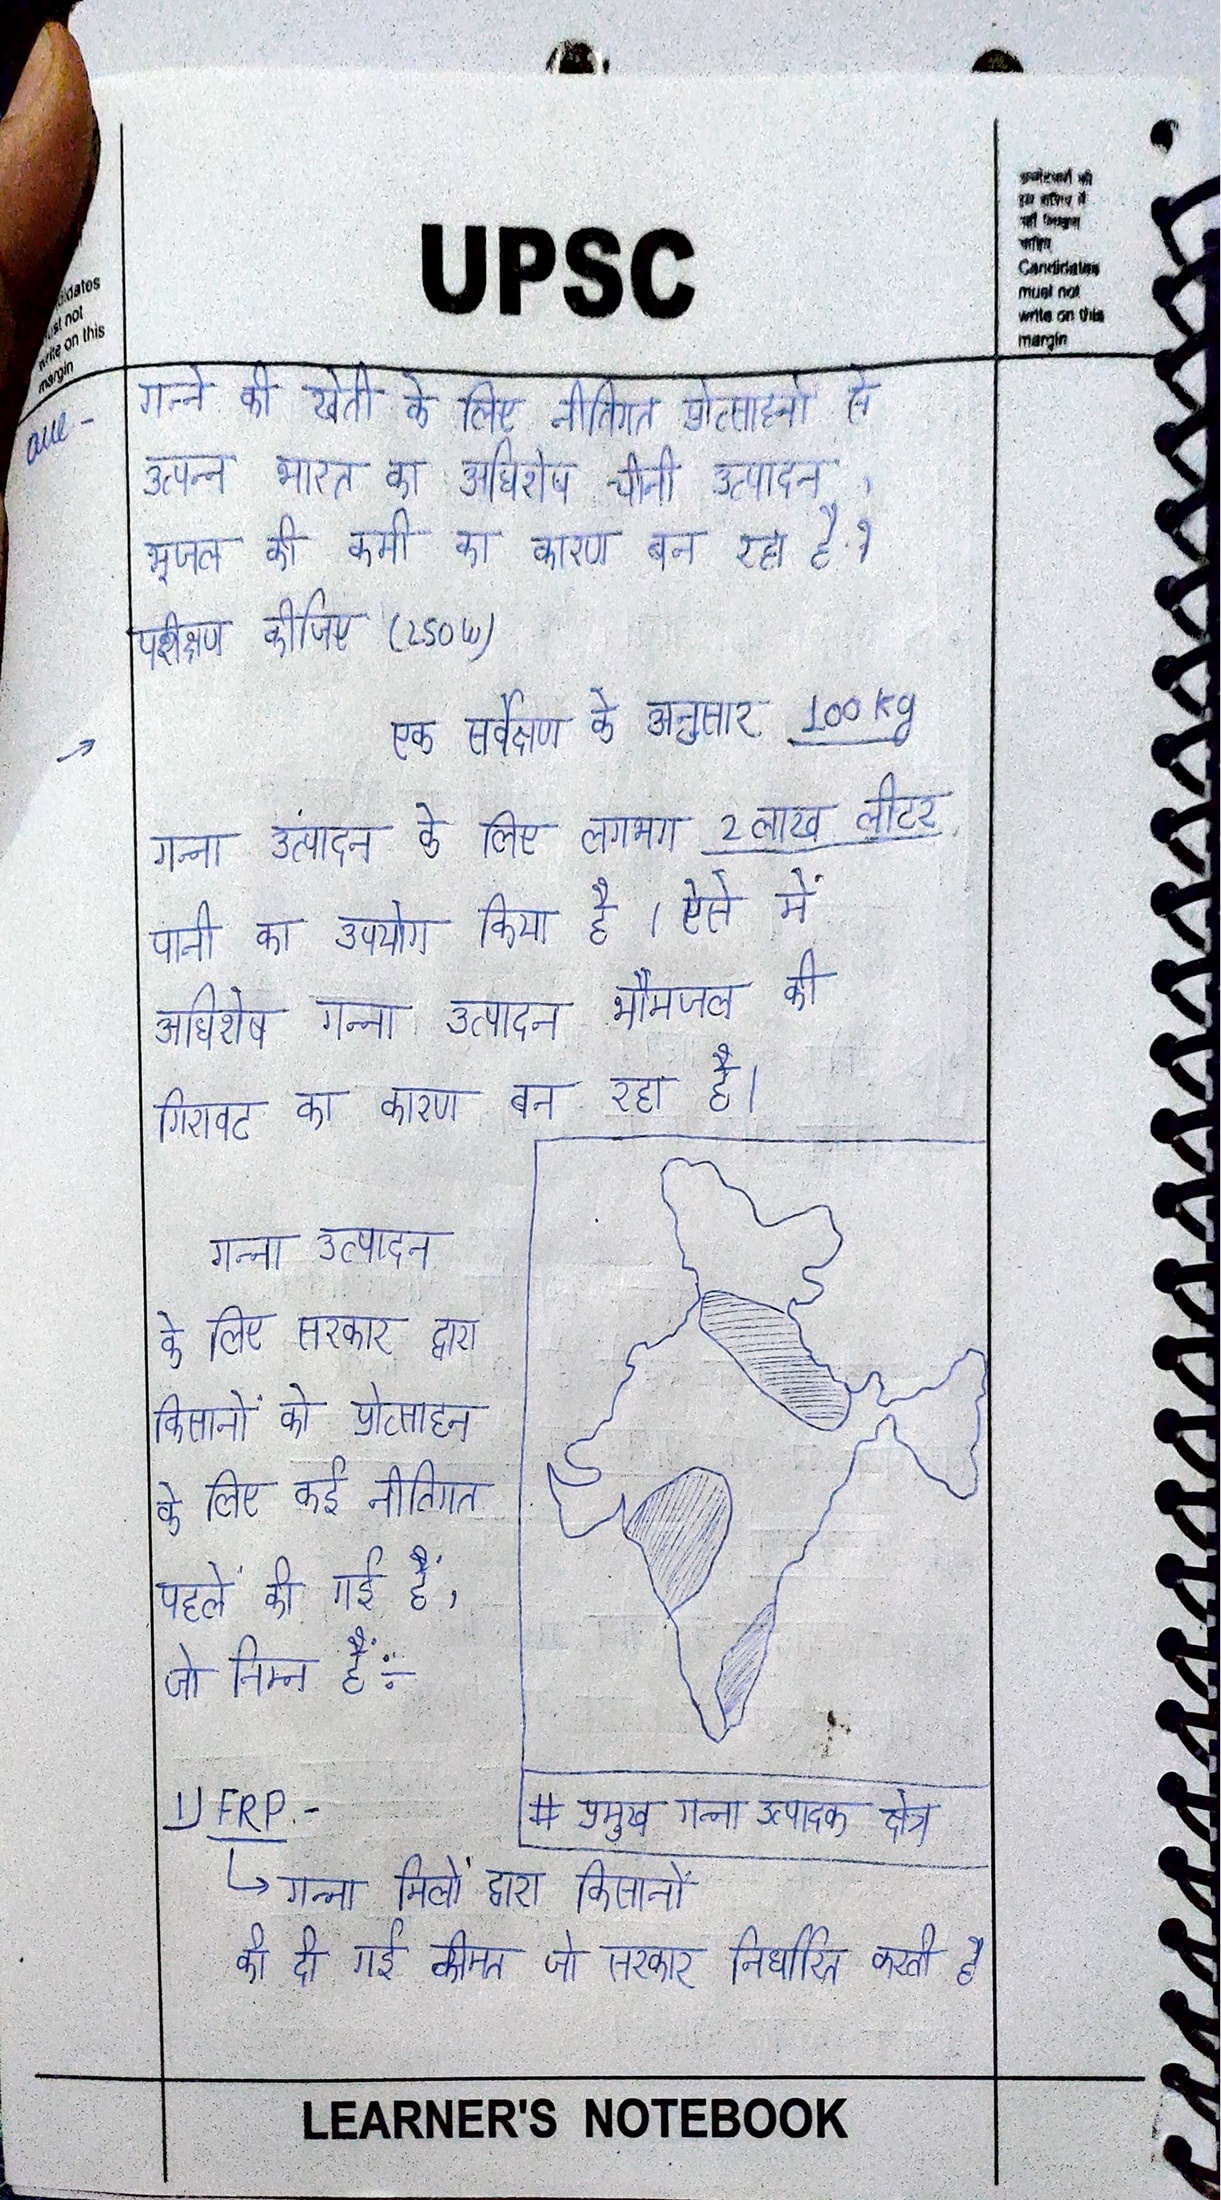 UPSC
उम्मीदवारों को
इस हाशिए में
नहीं लिखना
चाहिए
Candidates
must not
write on this
margin
didates
ust not
write on this
margin
Que -
गन्ने की खेती के लिए नीतिगत प्रोत्साहनों से
उत्पन्न भारत का अधिशेष चीनी उत्पादन,
भूजल की कमी का कारण बन रहा है?
परीक्षण कीजिए (250W)
→ एक सर्वेक्षण के अनुसार 100 kg
गन्ना उत्पादन के लिए लगभग 2 लाख लीटर
पानी का उपयोग किया है । ऐसे में
अधिशेष गन्ना उत्पादन भौमजल की
गिरावट का कारण बन रहा है।
गन्ना उत्पादन
के लिए सरकार द्वारा
किसानों को प्रोत्साहन
के लिए कई नीतिगत
पहलें की गई हैं,
जो निम्न हैं:-
# प्रमुख गन्ना उत्पादक क्षेत्र
1) FRP:-
↳ गन्ना मिलों द्वारा किसानों
की दी गई कीमत जो सरकार निर्धारित करती है
LEARNER'S NOTEBOOK